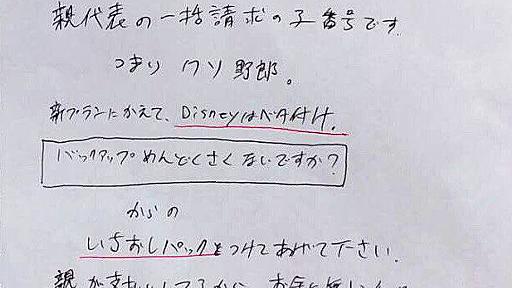 親代表の一括請求の子番号です
つまり クソ野郎。
新プランにかえて、Disneyはベタ付け。
バックアップめんどくさくないですか?
からの
いちおしパックをつけてあげて下さい。
親が支払いしてるから、お金に無